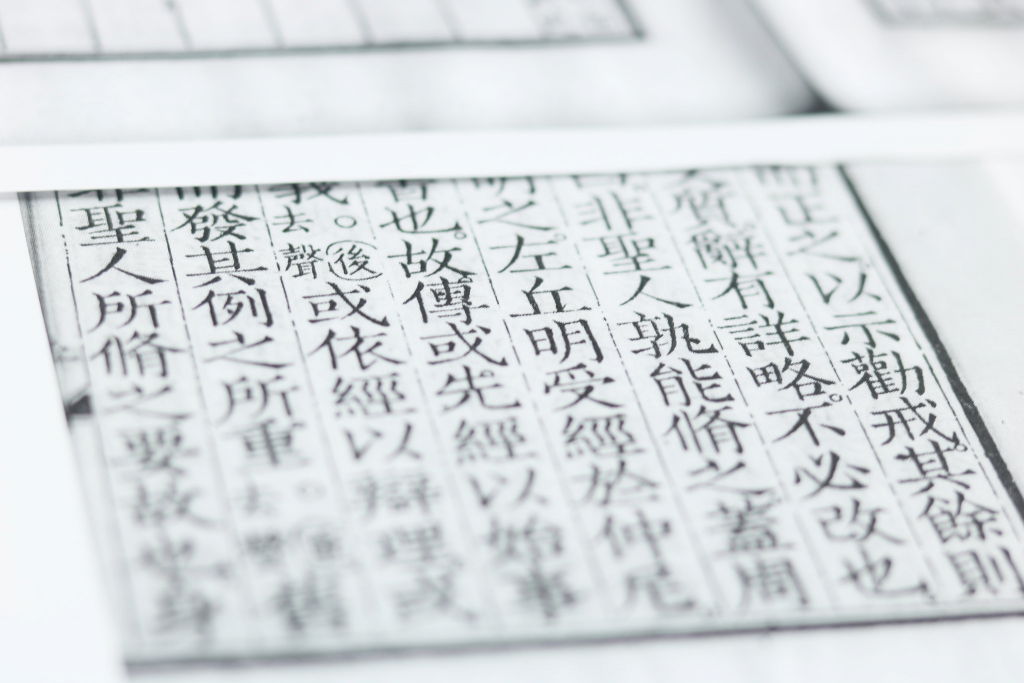 而正之以示勸戒。其餘則
文質。辭有詳略。不必改也
曰非聖人孰能脩之蓋周
明之。左丘明受經於仲尼
書也。故傳或先經以始事
義。去聲。後或依經以辯理或
而發其例之所重。去聲舊
非聖人所脩之要故也身